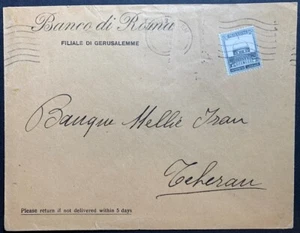 Banco di Roma
FILIALE DI GERUSALEMME
Banque Mellié Iran
Teheran
Please return if not delivered within 5 days